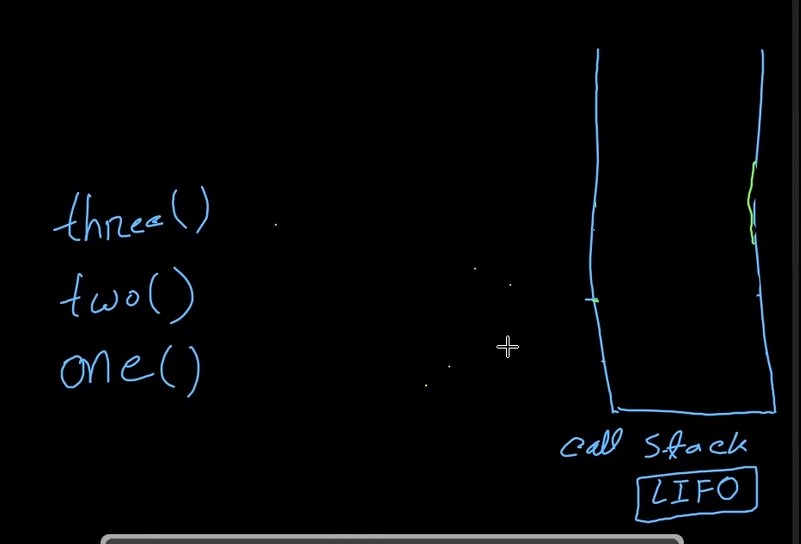 three()
two()
one()
call stack
LIFO